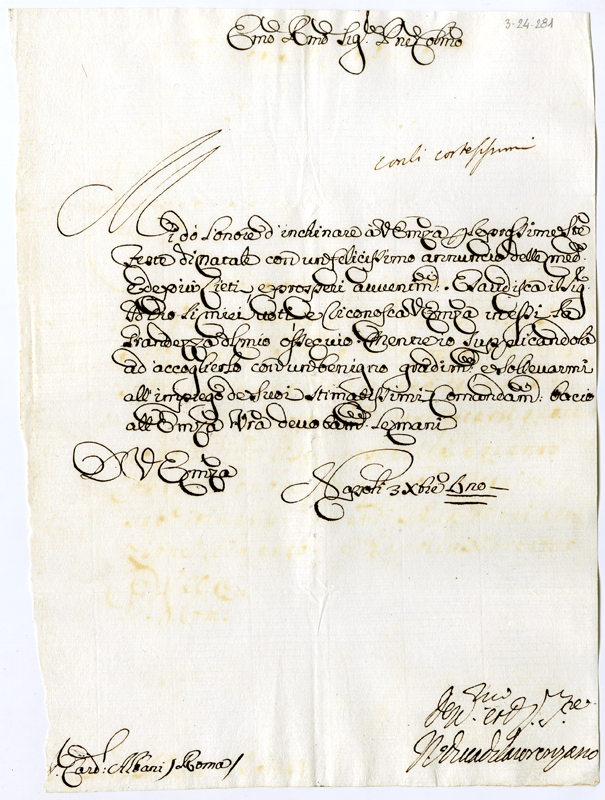 3-24-281
Emo Rmo Sig.r Pne Colmo
corli cortesissimi
Mi do l'onore d'inchinare a V Emza p le prossime Ste
Feste di Natale con un felicissimo annuncio delle med.
E de piu lieti, e prosperi avvenim.ti Esaudisca il Sig.
Iddio li miei voti, e riconosca V Emza in essi la
grandezza del mio ossequio. Mentre io supplicandola
ad accoglierlo con un benigno gradim.to e sollevarmi
all'impiego de suoi stimadissimi Comandam: bacio
all'Emza Vra devotam.te le mani
D V Emza
Napoli 3 Xbre
Card: Albani / Roma /
Il Duca di Laurenzano